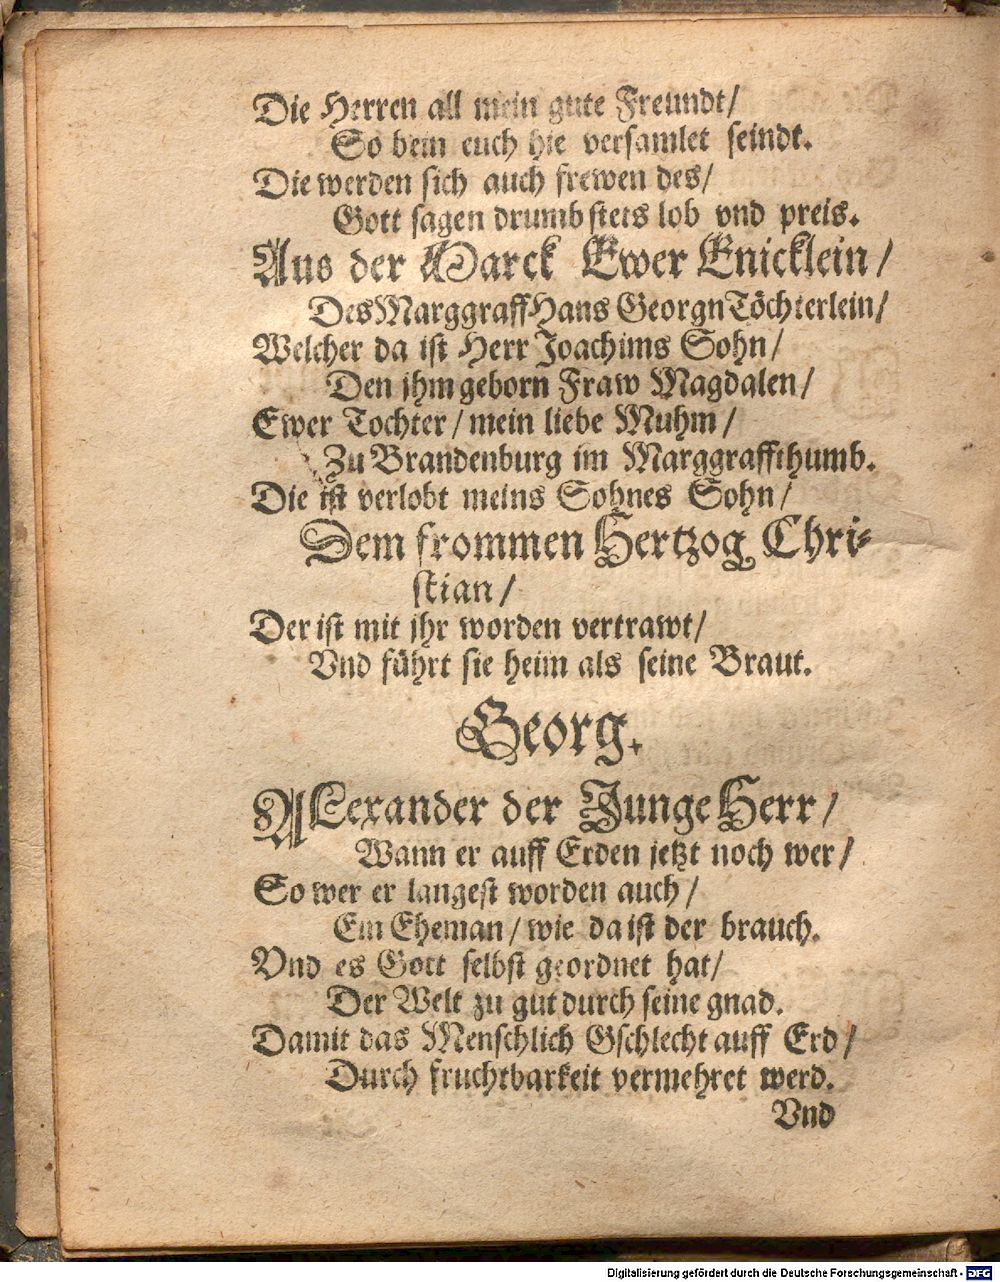 Die Herren all mein gute Freundt/
So bein euch hie versamlet seindt.
Die werden sich auch frewen des/
Gott sagen drumb stets lob vnd preis.
Aus der Marck Ewer Enicklein/
Des Marggraff Hans Georgn Töchterlein/
Welcher da ist Herr Joachims Sohn/
Den jhm geborn Fraw Magdalen/
Ewer Tochter/ mein liebe Muhm/
Zu Brandenburg im Marggraffthumb.
Die ist verlobt meins Sohnes Sohn/
Dem frommen Hertzog Chri-
stian/
Der ist mit jhr worden vertrawt/
Vnd führt sie heim als seine Braut.
Georg.
ALexander der Junge Herr/
Wann er auff Erden jetzt noch wer/
So wer er langest worden auch/
Ein Eheman/ wie da ist der brauch.
Vnd es Gott selbst geordnet hat/
Der Welt zu gut durch seine gnad.
Damit das Menschlich Gschlecht auff Erd/
Durch fruchtbarkeit vermehret werd.
Vnd
Digitalisierung gefördert durch die Deutsche Forschungsgemeinschaft - DFG